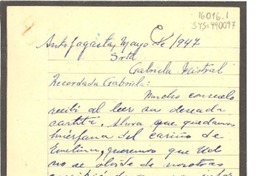 16016.1
Sys: 990097
Antofagasta, Mayo 1947.
Srta
Gabriela Mistral
Recordada Gabriela:
Mucho consuelo
recibí al leer su deseada
cartita. Ahora que quedamos
huérfanas del cariño de
queremos que Ud
no se olvide de nosotras